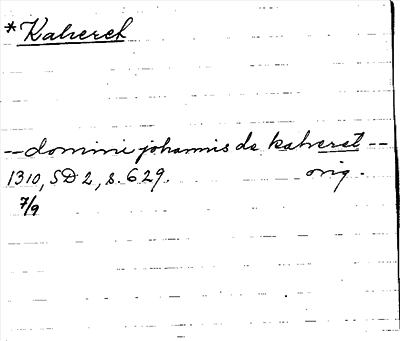 *Kalverch
-- domini johannis de kalveret --
1310, SD 2, s. 629. orig.
7/9